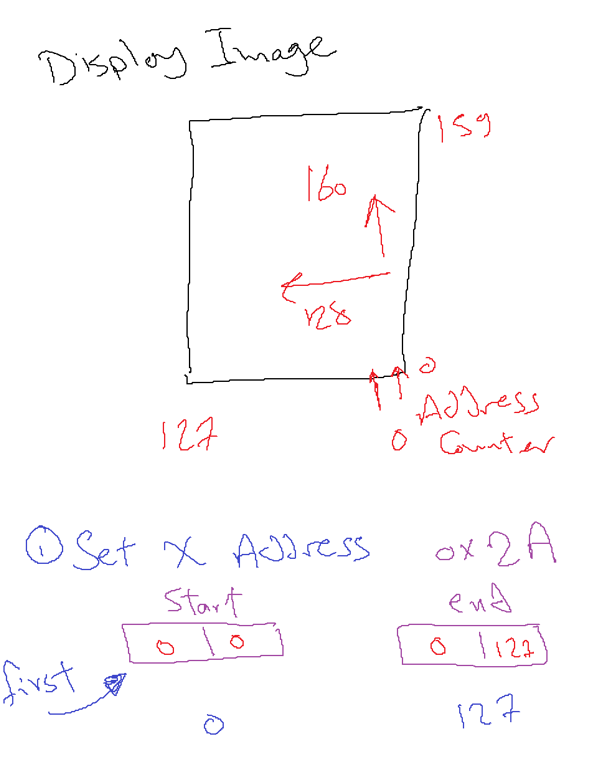 Display Image
159
160
128
0
127
0
Address
Counter
① Set X Address 0x2A
Start end
0 0 0 127
first
0 127